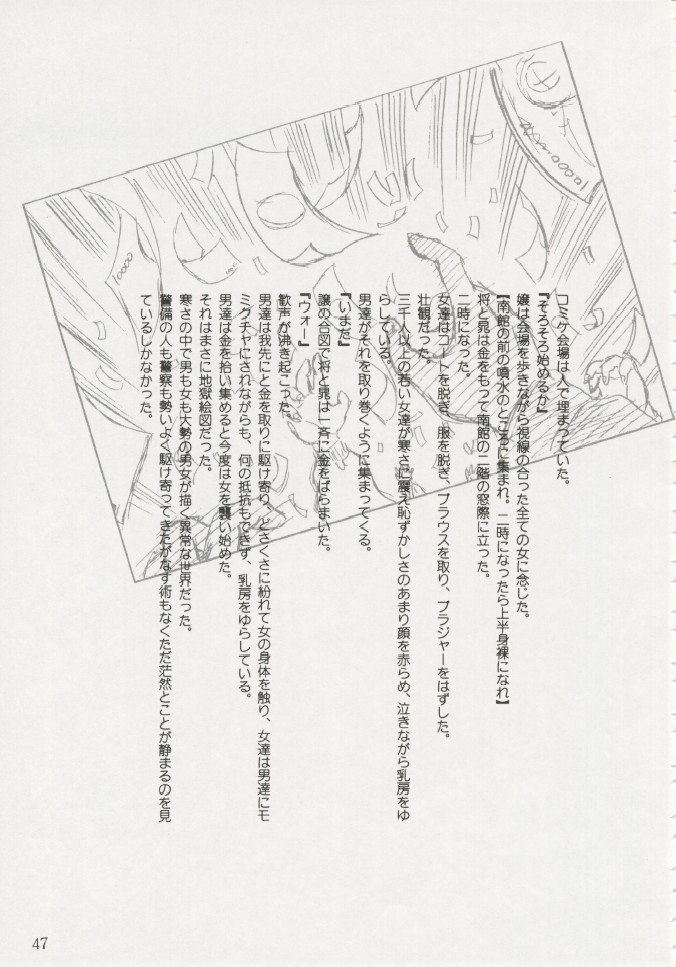 コミケ会場は人で埋まっていた。
『そろそろ始めるか』
嬢は会場を歩きながら視線の合った全ての女に念じた。
【南館の前の噴水のところに集まれ。二時になったら上半身裸になれ】
将と晁は金をもって南館の二階の窓際に立った。
二時になった。
女達はコートを脱ぎ、服を脱ぎ、ブラウスを取り、ブラジャーをはずした。
壮観だった。
三千人以上の若い女達が寒さに震え恥ずかしさのあまり顔を赤らめ、泣きながら乳房をゆ
らしている。
男達がそれを取り巻くように集まってくる。
『いまだ』
譲の合図で将と晁は一斉に金をばらまいた。
『ウォー』
歓声が沸き起こった。
男達は我先にと金を取りに駆け寄り、どさくさに紛れて女の身体を触り、女達は男達にモ
ミクチャにされながらも、何の抵抗もできず、乳房をゆらしている。
男達は金を拾い集めると今度は女を襲い始めた。
それはまさに地獄絵図だった。
寒さの中で男も女も大勢の男女が描く異常な世界だった。
警備の人も警察も勢いよく駆け寄ってきたがなす術もなくただ茫然とことが静まるのを見
ているしかなかった。
10000
10000
47